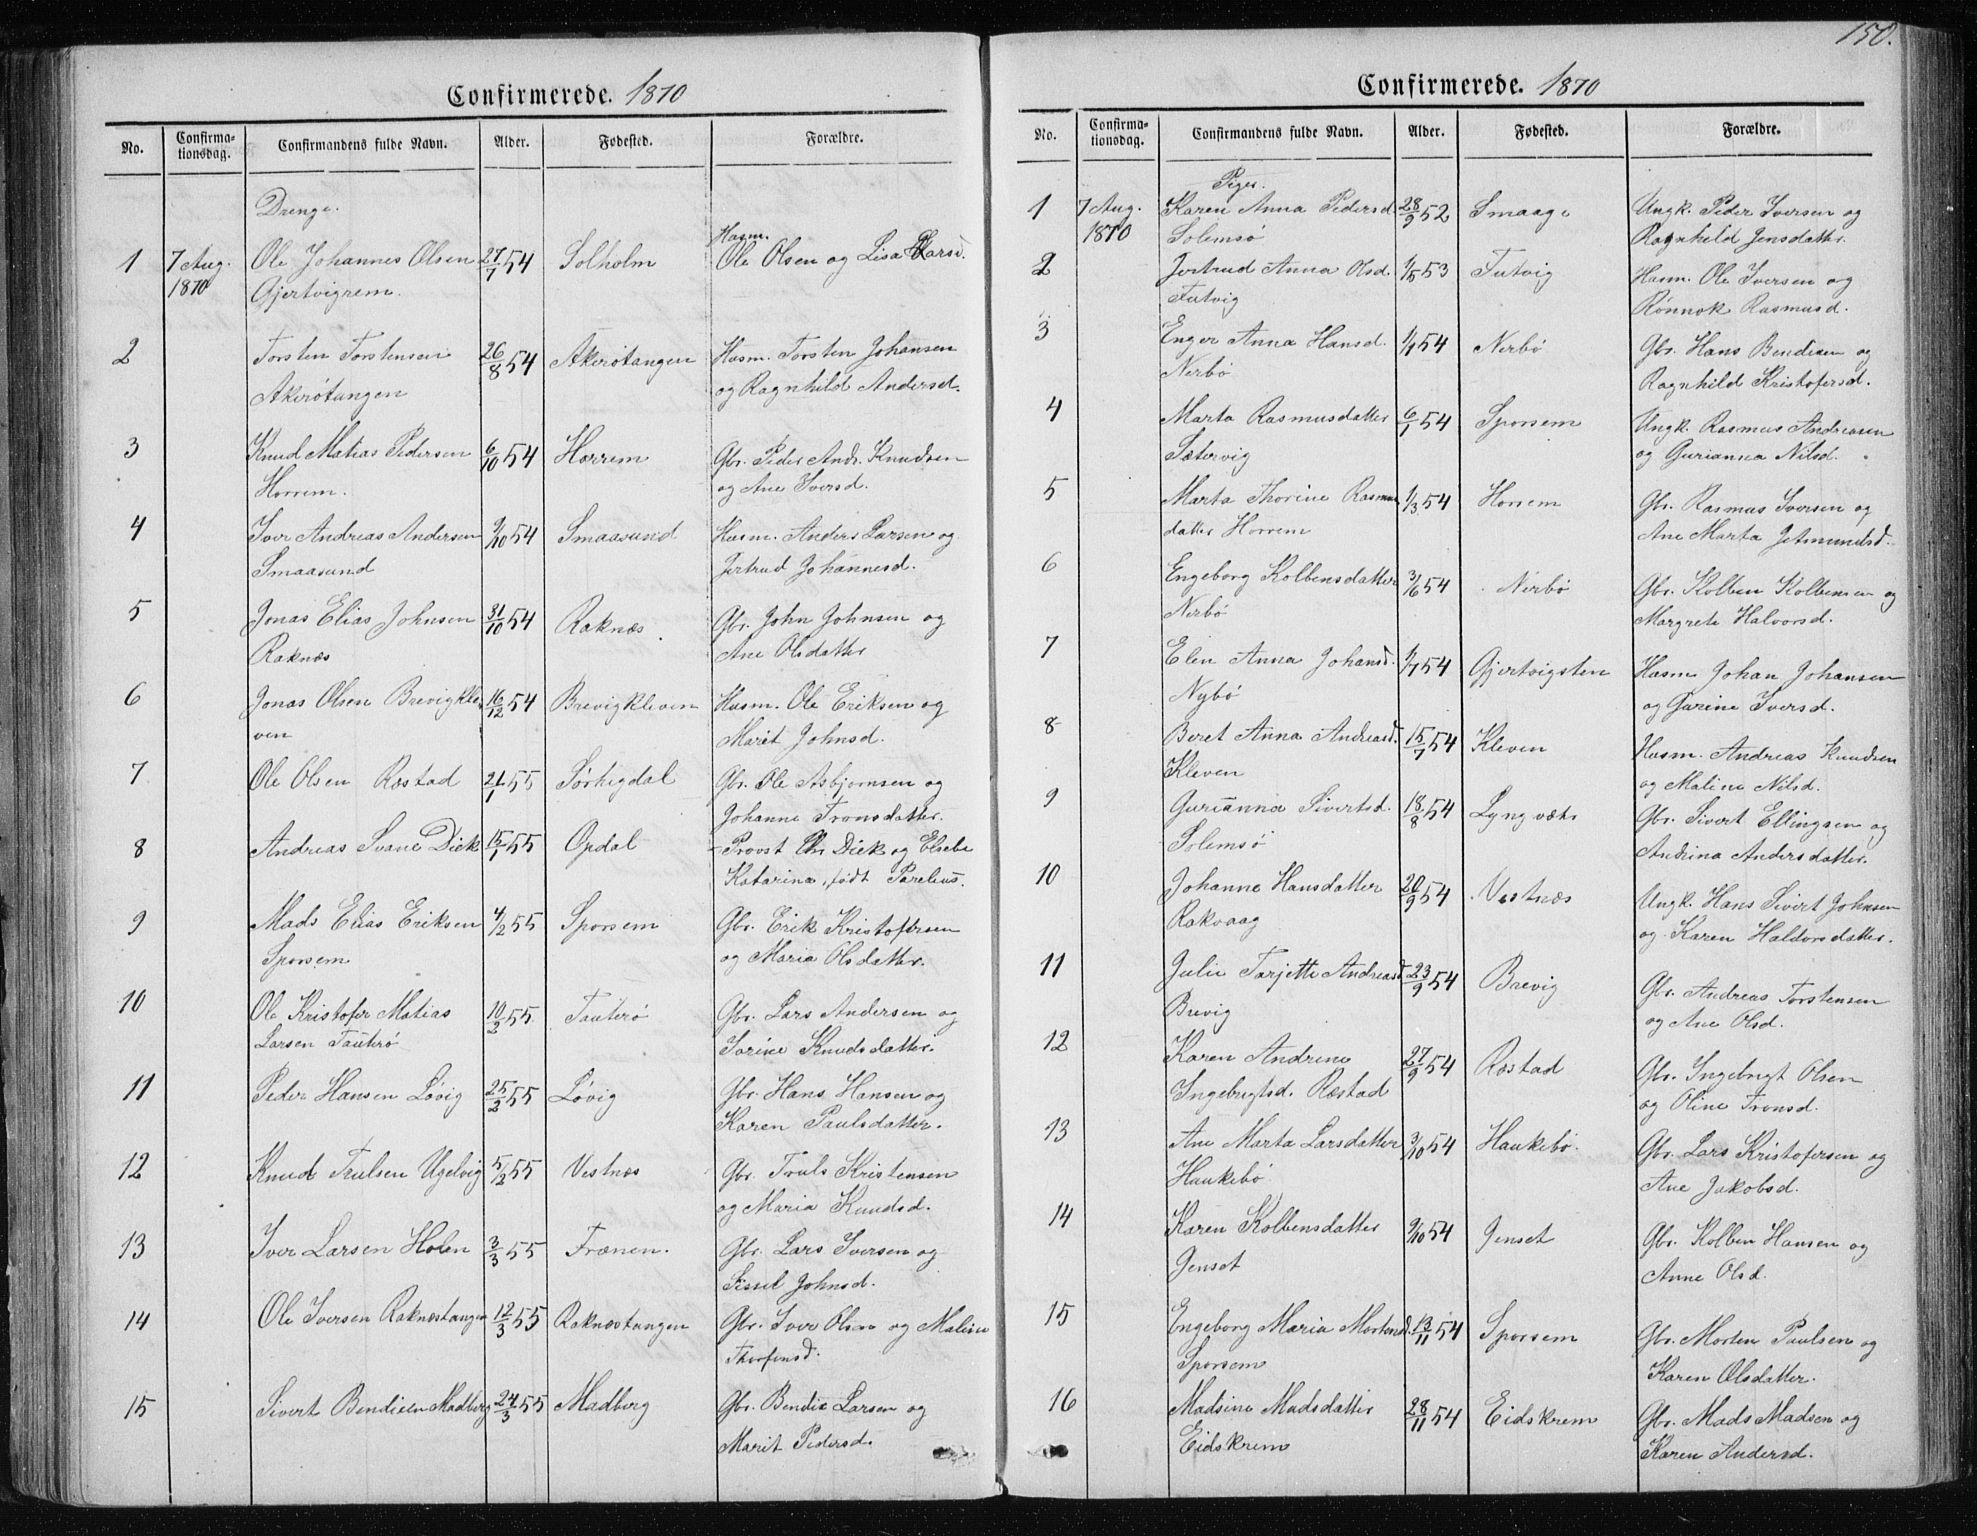 Confirmerede. 1870
No. Confirma-tionsdag. Confirmandens fulde Navn. Alder. Fødested. Forældre.
Drenge.
1 7 Aug. 1870 Ole Johannes Olsen 27/7 54 Solholm Husm. Ole Olsen og Lisa Larsd.
Gjertvigrem.
2 Torsten Torstensen 26/8 54 Akerøtangen Husm. Torsten Johansen
Akerøtangen og Ragnhild Andersd.
3 Knud Matias Pedersen 6/10 54 Horrem Gbr. Peder Andr. Knudsen
Horrem. og Ane Iversd.
4 Iver Andreas Andersen 9/10 54 Smaasund Husm. Anders Larsen og
Smaasund Jertrud Johannesd.
5 Jonas Elias Johnsen 31/10 54 Raknæs. Gbr. John Johnsen og
Raknæs Ane Olsdatter
6 Jonas Olsen Brevigkle- 16/12 54 Brevigkleven Husm. Ole Eriksen og
ven Marit Johnsd.
7 Ole Olsen Røstad 2/1 55 Sørhigdal Gbr. Ole Asbjørnsen og
Johanne Tronsdatter.
8 Andreas Svane Dick 15/1 55 Opdal Provst Chr Dick og Elsebe
Katarina, født Parelius.
9 Mads Elias Eriksen 4/2 55 Sporsem Gbr. Erik Kristofersen
Sporsem og Maria Olsdatter.
10 Ole Kristofer Matias 10/2 55 Tauterø Gbr. Lars Andersen og
Larsen Tautrø Sorine Knudsdatter.
11 Peder Hansen Løvig 25/2 55 Løvig Gbr. Hans Hansen og
Karen Paulsdatter.
12 Knud Trulsen Ugelvig 5/2 55 Vestnæs Gbr. Truls Kristensen
og Maria Knudsd.
13 Iver Larsen Holen 3/3 55 Frænen. Gbr. Lars Iversen og
Sissel Johnsd.
14 Ole Iversen Raknæstangen 12/3 55 Raknæstangen Gbr. Iver Olsen og Malene
Thorfinsd.
15 Sivert Bendixen Madberg 24/3 55 Madberg Gbr. Bendix Larsen og
Marit Pedersd.
150.
Confirmerede. 1870
No. Confirma-tionsdag. Confirmandens fulde Navn. Alder. Fødested. Forældre.
Piger.
1 7 Aug. 1870 Karen Anna Pedersd. 28/9 52 Smaage Ungk. Peder Iversen og
Solemsø Ragnhild Jensdatter.
2 Jertrud Anna Olsd. 1/5 53 Tutvig Husm. Ole Iversen og
Tutvig Rønnok Rasmusd.
3 Enger Anna Hansd. 1/1 54 Nerbø Gbr. Hans Bendixen og
Nerbø Ragnhild Kristofersd.
4 Marta Rasmusdatter 6/1 54 Sporsem Ungk. Rasmus Andreasen
Sætervig og Gurianna Nilsd.
5 Marta Thorine Rasmus 1/3 54 Horrem Gbr. Rasmus Iversen og
datter Horrem Ane Marta Jetmundsd.
6 Engeborg Kolbensdatter 3/6 54 Nerbø Gbr. Kolben Kolbensen og
Nerbø Margrete Halvorsd.
7 Elen Anna Johansd. 1/7 54 Gjertvigsten Husm. Johan Johansen
Nybø og Gurine Iversd.
8 Beret Anna Andreasd. 15/7 54 Kleven Husm. Andreas Knudsen
Kleven og Malina Nilsd.
9 Gurianna Sivertsd. 18/8 54 Lyngvæhr Gbr. Sivert Ellingsen og
Solemsø Andrina Andersdatter.
10 Johanne Hansdatter 20/9 54 Vestnæs Ungk. Hans Sivert Johnsen
Rakvaag og Karen Haldorsdatter.
11 Julie Tarjette Andreasd 23/9 54 Brevig Gbr. Andreas Torstensen
Brevig og Ane Olsd.
12 Karen Andrine 27/9 54 Røstad Gbr. Ingebrigt Olsen
Ingebrigtsd. Røstad og Oline Tronsd.
13 Ane Marta Larsdatter 3/10 54 Haukebø. Gbr. Lars Kristofersen og
Haukebø Ane Jakobsd.
14 Karen Kolbensdatter 9/10 54 Jenset Gbr. Kolben Hansen og
Jenset Anne Olsd.
15 Engeborg Maria Mortensd. 13/11 54 Sporsem Gbr. Morten Paulsen og
Sporsem Karen Olsdatter.
16 Madsine Madsdatter 28/11 54 Eidskrem Gbr. Mads Madsen og
Eidskrem Karen Andersd.